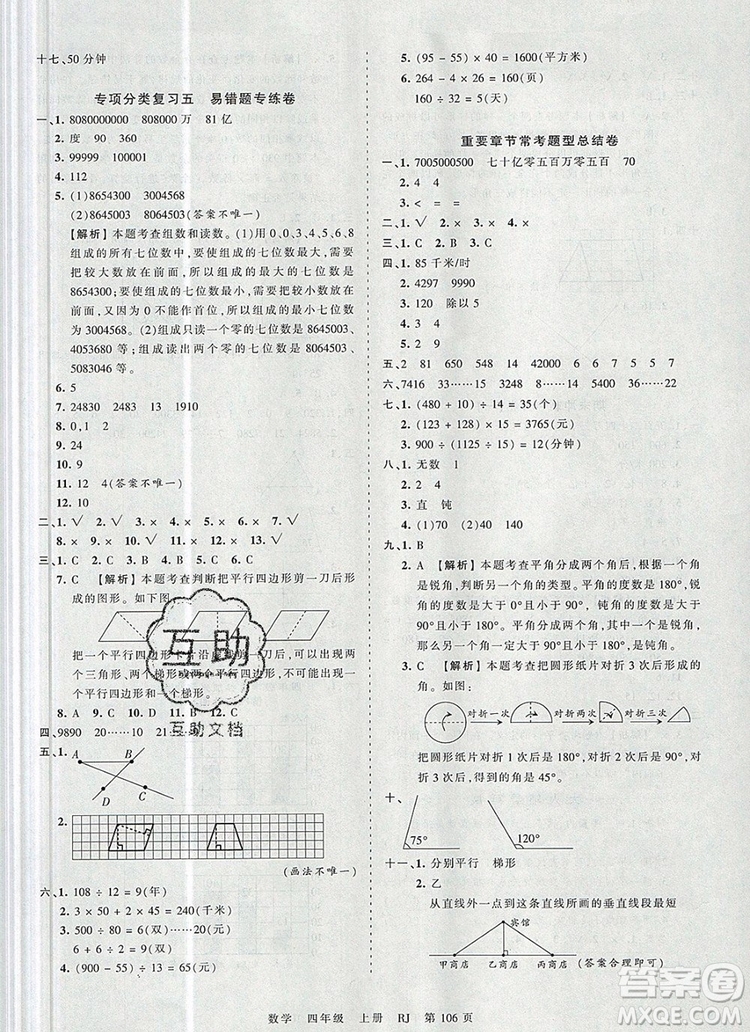 十七、50 分钟
专项分类复习五　易错题专练卷
一、1. 8080000000　808000 万　81 亿
2. 度　90　360
3. 99999　100000
4. 112
5. (1)8654300　3004568
(2)8645003　8064503(答案不唯一)
【解析】本题考查组数和读数。(1)用0、0、3、4、5、6、8
组成的所有七位数中，要使组成的七位数最大，需
要把较大数放在前面，所以组成的最大的七位数
是 8654300，要使组成的七位数最小，需要把较小数放在
前面，又因为 0 不能作首位，所以组成的最小的七位数
为 3004568。(2)组成只读一个零的七位数是 8645003，
组成读出两个零的七位数是 8064503、8504603、
5083046等。
6. 5
7. 24830　2483　13　1910
8. 0，1　2
10. 9
11. 12　4(答案不唯一)
12. 10
二、1. √　2. √　3. ×　4. ×　5. √　6. ×　7. ×
三、1. C　2. C　3. C　4. A　5. B　6. C
7. C　【解析】本题考查判断把平行四边形剪一刀后形
成的图形。如下图
把一个平行四边形卡片沿
两个三角形、两个梯形、两个平行四边形、一个三角
形和一个梯形。
8. A　9. C　10. D　11. B　12. C
四、9890　20……10
五、1.
A　B　D　C
2.
(画法不唯一)
六、1. 108 ÷ 12 = 9(年)
2. 3 × 4 × 5 × 4 = 240(千米)
3. 207 ÷ 23 = 9(双)　9 - 3 = 6(双)
6 + 6 - 9 = 3(双)
4. (900 - 55) ÷ 13 = 65(元)
5. (95 - 55) × 40 = 1600(平方米)
6. 264 - 4 × 26 = 160(页)
160 ÷ 32 = 5(天)
重要章节常考题型总结卷
一、1. 7005000500　七十亿零五百万零五百　70
2. 4
3. < = = <
二、1. √　2. ×　3. ×　4. ×
三、1. C　2. B　3. C
四、1. 85 千米/时
2. 4297　9990
3. 120　除以 5
4. ×
五、2　81　650　548　42000　6　7　5　7
六、7416　33……15　22……22
七、1. (480 + 10) ÷ 14 = 35(个)
2. (123 + 128) × 15 = 3765(元)
3. 900 ÷ (1125 ÷ 15) = 12(分钟)
八、1. 无数　1
2. 4
3. 直　钝
4. (1)70　(2)40　140
九、1. A　【解析】本题考查平角分成两个角后，其中一个角
是锐角，判断另一个角的类型。平角的度数是 180°，锐
角的度数大于 0°且小于 90°，钝角的度数大于
90°且小于 180°，所以一个平角分成两个角，一个是锐
角，那么另一个角一定大于 90°且小于 180°，即为钝角。
2. C　【解析】本题考查把圆形纸片对折 3 次后形成的
角。如图：
对折一次　对折两次　对折三次
把圆形纸片对折一次后形成的角是 180°，两次后是
90°，三次后，得到的角是 45°。
十、
75°　120°
十一、1. 分别平行　梯形
2. 乙
从直线外一点到这条直线的垂直线段最短
宾馆
甲商店　乙商店　丙商店　(答案合理即可)
互助
互助文档
数学　四年级　上册　RJ　第 106 页
答案圈
MXQE.COM